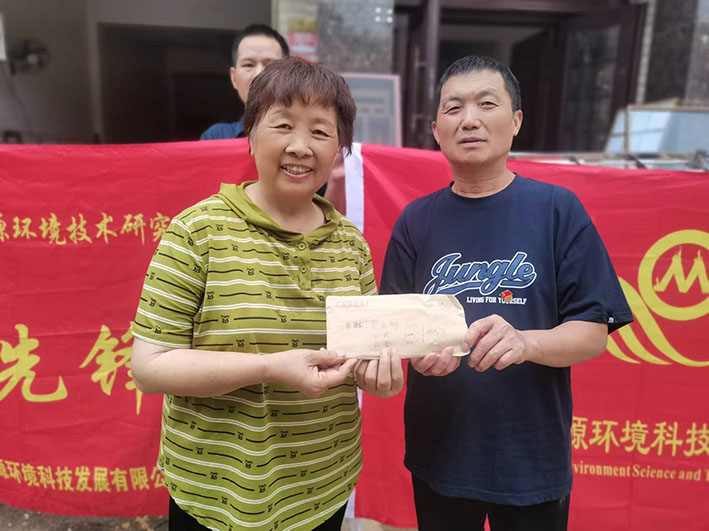 源环境技术研究
先锋
源环境科技发展有限公
Jungle
LIVING FOR YOURSELF
源环境科技
nvironment Science and T